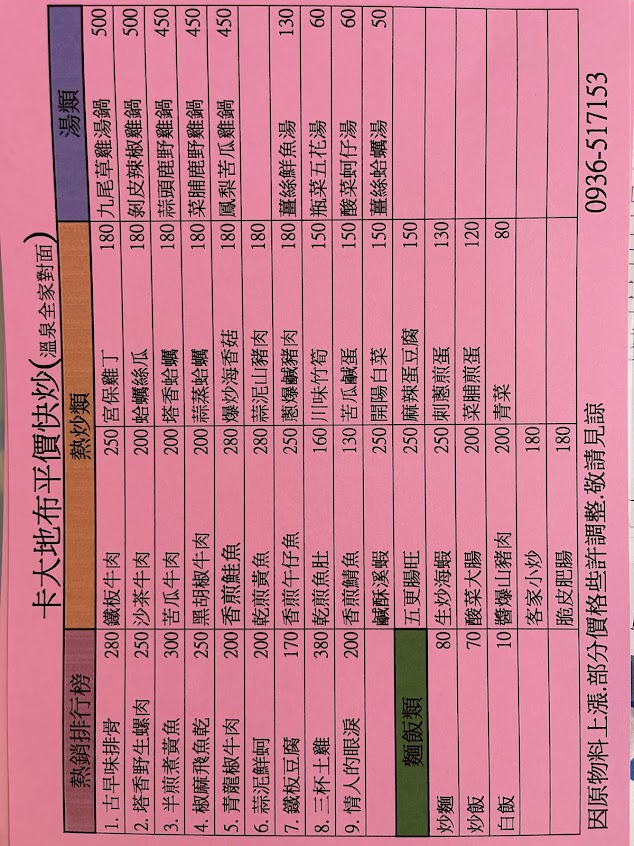 卡大地布平價快炒(溫泉全家對面)
熱銷排行榜 熱炒類 湯類
1. 古早味排骨 280 鐵板牛肉 250 宮保雞丁 180 九尾草雞湯鍋 500
2. 塔香野生螺肉 250 沙茶牛肉 200 蛤蠣絲瓜 180 剝皮辣椒雞鍋 500
3. 半煎煮黃魚 300 苦瓜牛肉 200 塔香蛤蠣 180 蒜頭鹿野雞鍋 450
4. 椒麻飛魚乾 250 黑胡椒牛肉 200 蒜蒸蛤蠣 180 菜脯鹿野雞鍋 450
5. 青龍椒牛肉 200 香煎鮭魚 280 爆炒海香菇 180 鳳梨苦瓜雞鍋 450
6. 蒜泥鮮蚵 200 乾煎黃魚 280 蒜泥山豬肉 180
7. 鐵板豆腐 170 香煎午仔魚 250 蔥爆鹹豬肉 180 薑絲鮮魚湯 130
8. 三杯土雞 380 乾煎魚肚 160 川味竹筍 150 瓶菜五花湯 60
9. 情人的眼淚 200 香煎鯖魚 130 苦瓜鹹蛋 150 酸菜蚵仔湯 60
鹹酥溪蝦 250 開陽白菜 150 薑絲蛤蠣湯 50
麵飯類 五更腸旺 250 麻辣蛋豆腐 150
炒麵 80 生炒海蝦 250 刺蔥煎蛋 130
炒飯 70 酸菜大腸 200 菜脯煎蛋 120
白飯 10 醬爆山豬肉 200 青菜 80
客家小炒 180
脆皮肥腸 180
因原物料上漲.部分價格些許調整.敬請見諒 0936-517153